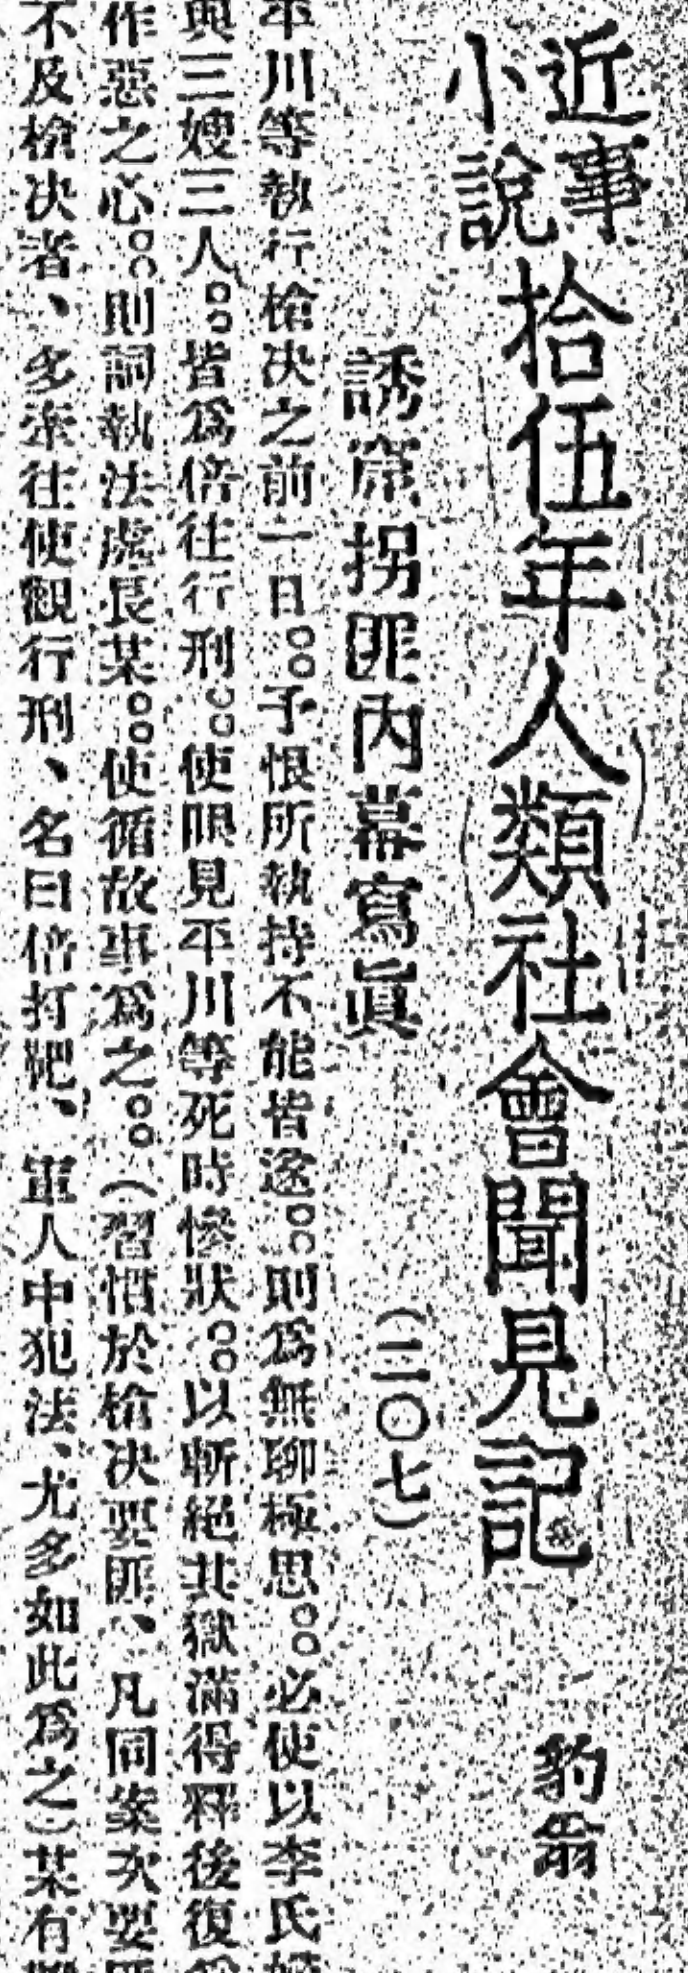 近事
小說
拾伍年人類社會聞見記
豹翁
誘窟拐匪內幕寫眞
(二〇七)
平川等執行槍决之前一日。。予恨所執持不能皆遂。。則爲無聊極思。。必使以李氏
與三嫂三人。。皆爲倍往行刑。。使眼見平川等死時慘狀。。以斬絕其獄滿得釋後復爲
作惡之心。。則詞執法處長某。。使循故事爲之。。(習慣於槍决要匪、凡同案次要匪
不及槍决者、多牽往使觀行刑、名曰倍打靶、軍人中犯法、尤多如此爲之)某有